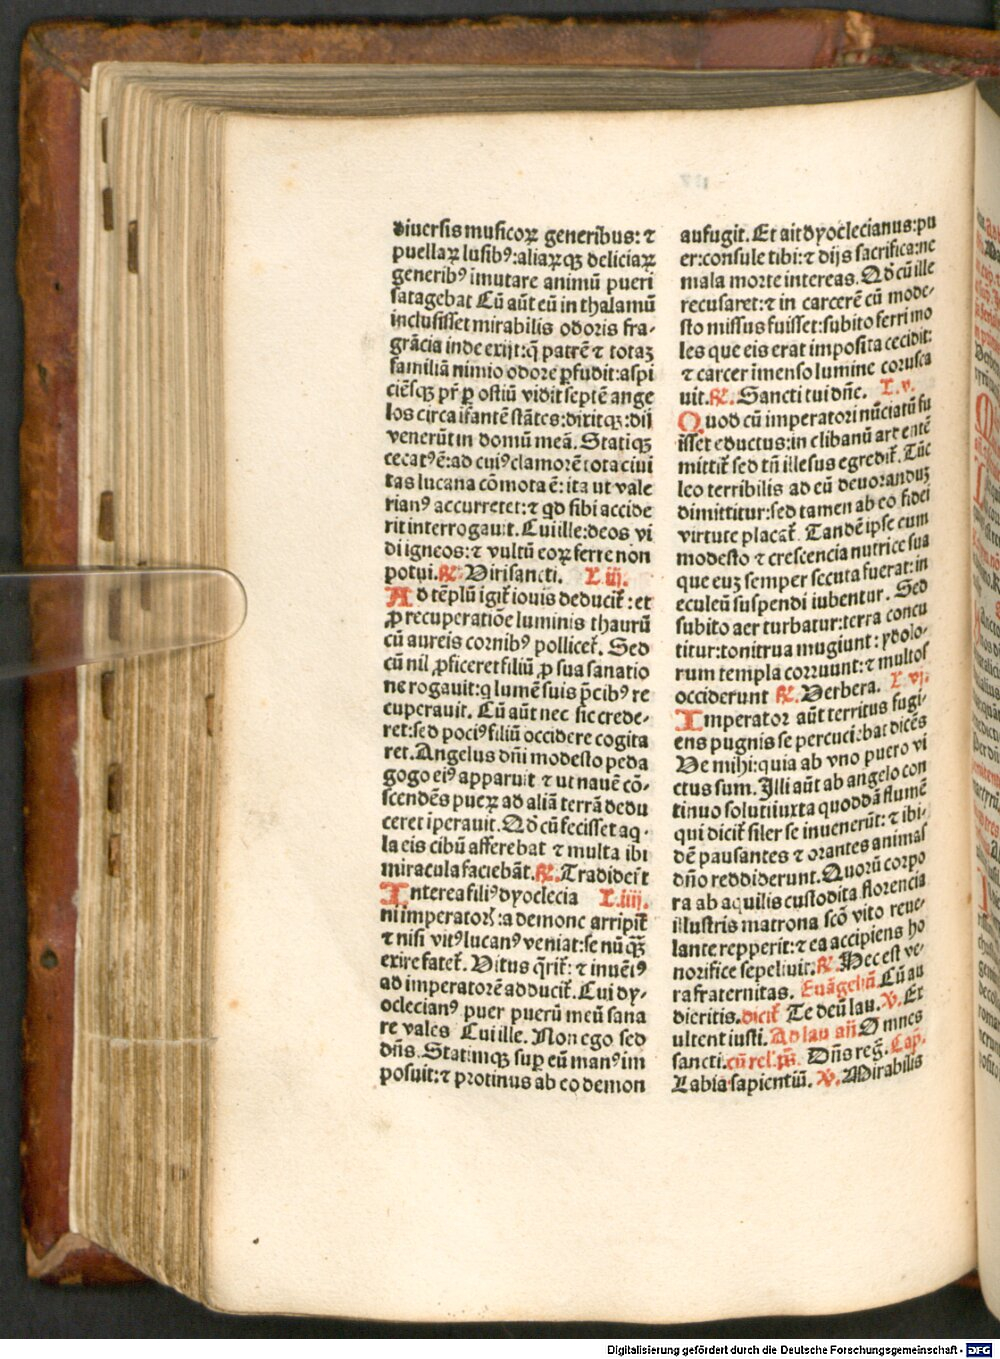 diuersis musicoꝝ generibus: ⁊
puellaꝝ lusibꝰ: aliaꝝqꝫ deliciaꝝ
generibꝰ imutare animū pueri
satagebat Cū aūt eū in thalamū
inclusisset mirabilis odoris fra-
grācia inde exijt: q̄ patrē ⁊ totaꝫ
familiā nimio odore ꝑfudit: aspi
ciēsqꝫ pr̄ ꝑ ostiū vidit septē ange
los circa ifantē stātes: dixitqꝫ: dij
venerūt in domū meā. Statiqꝫ
cecatꝰ ē: ad cuiꝰ clamorē tota ciui
tas lucana cōmota ē: ita ut vale
rianꝰ accurretet: ⁊ qd sibi accide
rit interrogauit. Cui ille: deos vi
di igneos: ⁊ vultū eoꝝ ferre non
potui. ℟. Viri sancti. L. iij.
Ad tēplū igit̄ iouis deducit̄: et
ꝓ recuperatiōe luminis thaurū
cū aureis cornibꝰ pollicet̄. Sed
cū nil ꝓficeret filiū ꝓ sua sanatio
ne rogauit: q lumē suis p̄cibꝰ re
cuperauit. Cū aūt nec sic crede-
ret: sed pociꝰ filiū occidere cogita
ret. Angelus dn̄i modesto peda
gogo eiꝰ apparuit ⁊ ut nauē cō-
scendēs pueꝝ ad aliā terrā dedu
ceret iperauit. Qd cū fecisset aq-
la eis cibū afferebat ⁊ multa ibi
miracula faciebāt. ℟. Tradider̄t
Interea filiꝰ dyoclecia L. iiij.
ni imperatorꝭ: a demone arripit̄
⁊ nisi vitꝰ lucanꝰ veniat: se nūqꝫ
exire fatet̄. Vitus q̄rit̄: ⁊ inuēiꝰ
ad imperatorē adducit̄. Cui dy-
oclecianꝰ puer puerū meū sana
re vales Cui ille. Non ego sed
dn̄s. Statimqꝫ suꝑ eū manꝰ im
posuit: ⁊ protinus ab eo demon
aufugit. Et ait dyoclecianus: pu
er: consule tibi: ⁊ dijs sacrifica: ne
mala morte intereas. Qd cū ille
recusaret: ⁊ in carcerē cū mode-
sto missus fuisset: subito ferri mo
les que eis erat imposita cecidit:
⁊ carcer īmenso lumine corusca
uit. ℟. Sancti tui dn̄e. L. v.
Quod cū imperatori nūciatū fu
isset eductus: in clibanū ardentē
mittit̄ sed tn̄ illesus egredit̄. Tūc
leo terribilis ad eū deuoranduꝫ
dimittitur: sed tamen ab eo fidei
virtute placat̄. Tandē ipse cum
modesto ⁊ crescencia nutrice sua
que euꝫ semper secuta fuerat: in
eculeū suspendi iubentur. Sed
subito aer turbatur: terra concu
titur: tonitrua mugiunt: ydolo-
rum templa corruunt: ⁊ multos
occiderunt ℟. Verbera. L. vj.
Imperator aūt territus fugi-
ens pugnis se percuciebat dicēs
Ve mihi: quia ab vno puero vi
ctus sum. Illi aūt ab angelo con
tinuo soluti iuxta quoddā flumē
qui dicit̄ siler se inuenerūt: ⁊ ibi-
dē pausantes ⁊ orantes animas
dn̄o reddiderunt. Quorū corpo
ra ab aquilis custodita florencia
illustris matrona scō vito reue-
lante repperit: ⁊ ea accipiens ho
norifice sepeliuit. ℟. Hec est ve-
ra fraternitas. Euāgeliū. Cū au
dieritis. dicit̄ Te deū lau. ℣. Ex
ultent iusti. Ad lau. an̄. Omnes
sancti. cū rel. ps̄. Dn̄s reḡ. Cap.
Labia sapientiū. ℣. Mirabilis
Digitalisierung gefördert durch die Deutsche Forschungsgemeinschaft - DFG